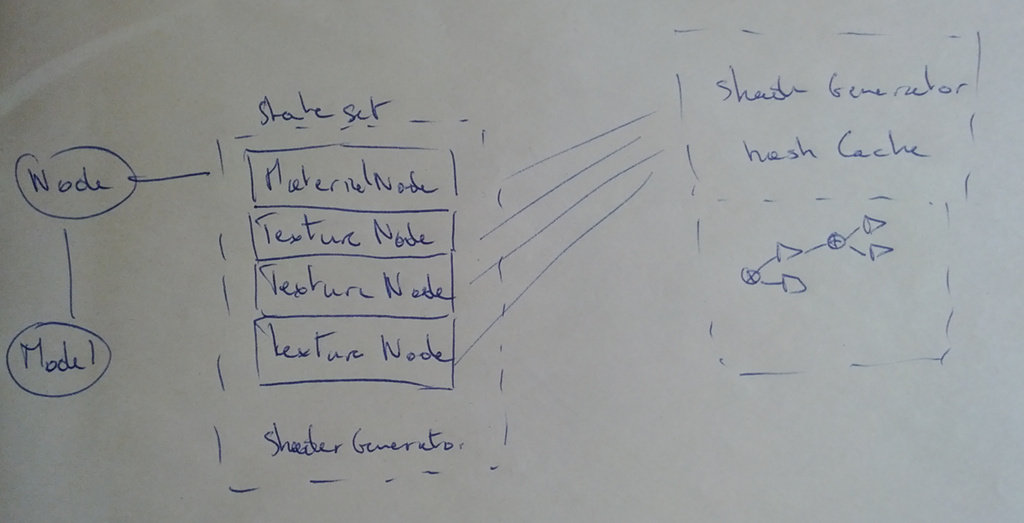 State Set
Node
Material Node
Texture Node
Texture Node
Texture Node
Model
Shader Generator
Shader Generator
hash Cache